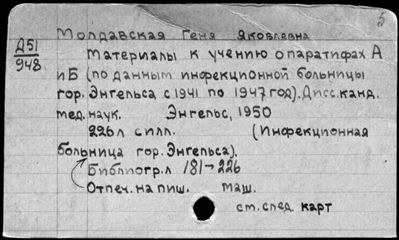 5
Молдавская Геня Яковлевна
Д51
948
Материалы к учению о паратифах А
и Б (по данным инфекционной больницы
гор. Энгельса с 1941 по 1947 год). Дисс. канд.
мед. наук. Энгельс, 1950
226 л с илл. (Инфекционная
больница гор. Энгельса).
Библиогр. л 181-226
Отпеч. на пиш. маш.
см. след карт